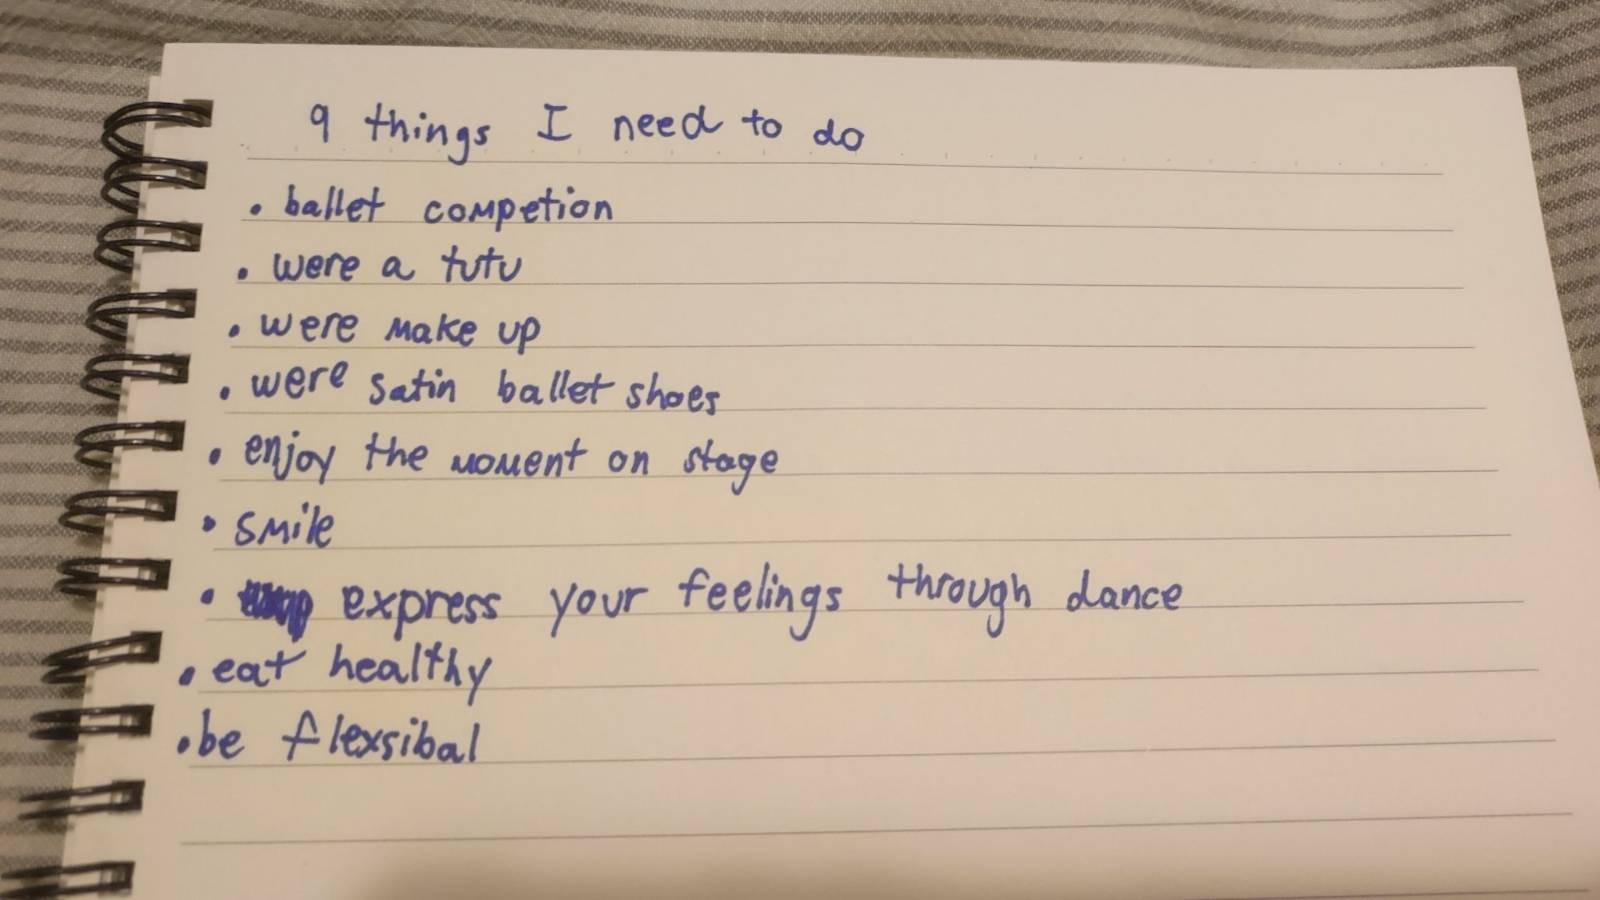 9 things I need to do
• ballet competion
• were a tutu
• were make up
• were satin ballet shoes
• enjoy the moment on stage
• smile
• express your feelings through dance
• eat healthy
• be flexsibal